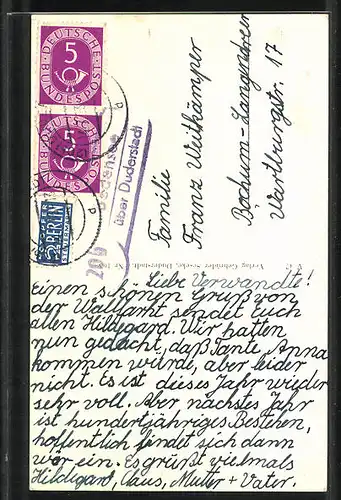 DEUTSCHE
BUNDESPOST
5
DEUTSCHE
BUNDESPOST
5
NOTOPFER
2 BERLIN
STEUERMARKE
über Duderstadt
Familie
Franz Weitkämper
Bochum-Langendreer
Wartburgstr. 17
Verlag Gebrüder
Liebe Verwandte!
Einen schönen Gruß von
der Wallfahrt sendet Euch
allen Hildegard. Wir hatten
nun gedacht, daß Tante Anna
kommen würde, aber leider
nicht. Es ist dieses Jahr wieder
sehr voll. Aber nächstes Jahr
ist hundertjähriges Bestehen,
hoffentlich findet sich dann
wer ein. Es grüßt vielmals
Hildegard, Claus, Mutter + Vater.